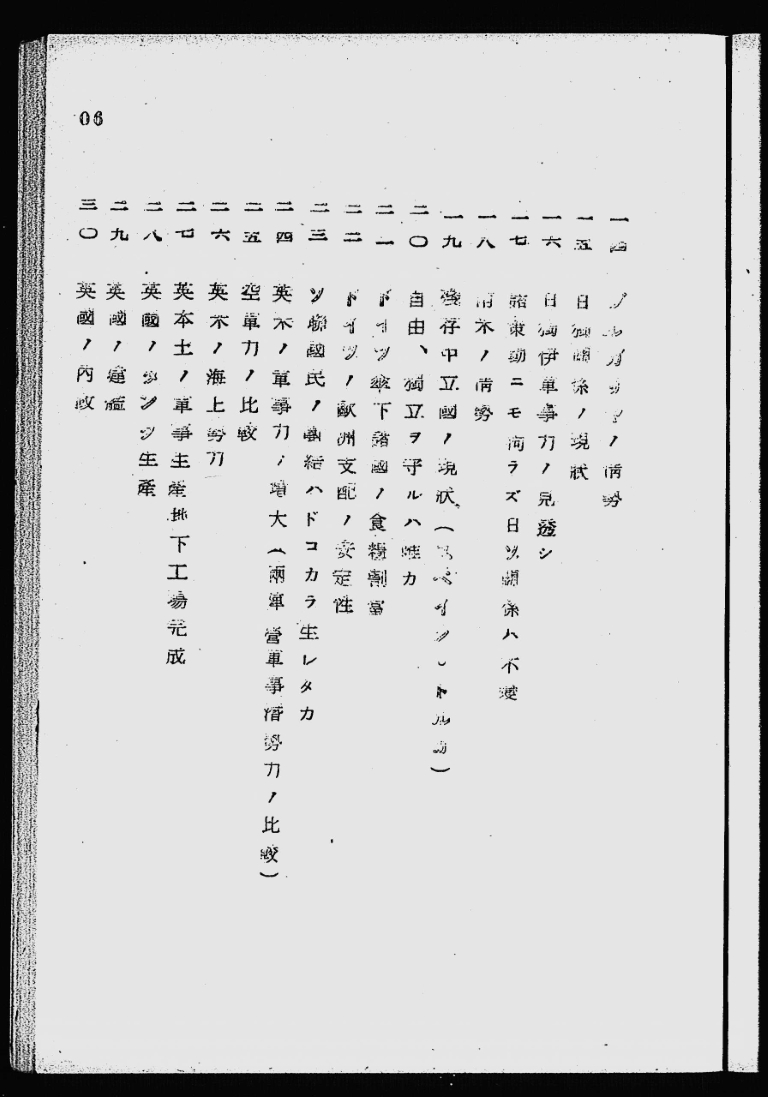 06
一四 ブルガリヤノ情勢
一五 日獨關係ノ現狀
一六 日獨伊軍事力ノ見透シ
一七 諸東動ニモ向ラズ日ソ關係ハ不變
一八 南米ノ情勢
一九 殘存中立國ノ現狀、(スペイン、トルコ)
二〇 自由、獨立ヲ守ルハ誰カ
二一 ドイツ傘下諸國ノ食糧割當
二二 ドイツノ歐洲支配ノ安定性
二三 ソ聯國民ノ團結ハドコカラ生レタカ
二四 英米ノ軍事力ノ增大(兩陣營軍事潛勢力ノ比較)
二五 空軍力ノ比較
二六 英米ノ海上勢力
二七 英本土ノ軍事生產地下工場完成
二八 英國ノタンク生產
二九 英國ノ建艦
三〇 英國ノ內政